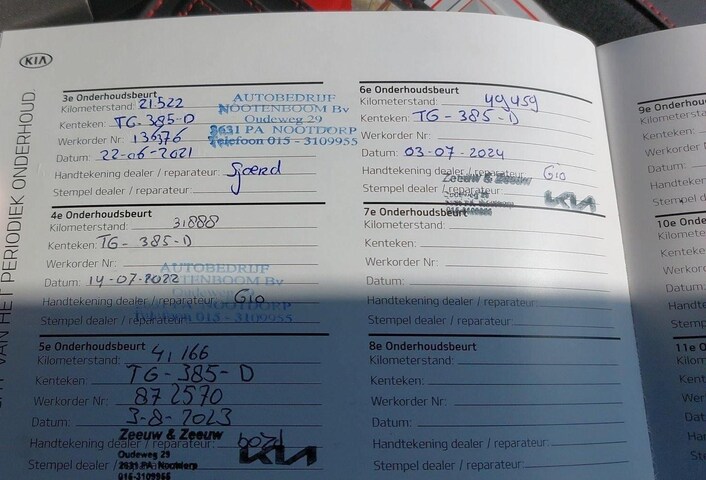 KIA
VAN HET PERIODIEK ONDERHOUD.
3e Onderhoudsbeurt
Kilometerstand: 21522
Kenteken: TG-385-D
Werkorder Nr: 136376
Datum: 22-06-2021
Handtekening dealer / reparateur: Sjoerd
Stempel dealer / reparateur:
AUTOBEDRIJF
NOOTENBOOM Bv
Oudeweg 29
2631 PA NOOTDORP
Telefoon 015 - 3109955
4e Onderhoudsbeurt
Kilometerstand: 31888
Kenteken: TG-385-D
Werkorder Nr:
Datum: 14-07-2022
Handtekening dealer / reparateur: Gio
Stempel dealer / reparateur:
AUTOBEDRIJF
NOOTENBOOM Bv
NOOTDORP
Telefoon 015 - 3109955
5e Onderhoudsbeurt
Kilometerstand: 41166
Kenteken: TG-385-D
Werkorder Nr: 872570
Datum: 3-8-2023
Handtekening dealer / reparateur:
Stempel dealer / reparateur:
Zeeuw & Zeeuw
Oudeweg 29
2631 PA Nootdorp
015-3109955
KIA
6e Onderhoudsbeurt
Kilometerstand: 49459
Kenteken: TG-385-D
Werkorder Nr:
Datum: 03-07-2024
Handtekening dealer / reparateur: Gio
Stempel dealer / reparateur:
Zeeuw & Zeeuw
015-3109955
KIA
7e Onderhoudsbeurt
Kilometerstand:
Kenteken:
Werkorder Nr:
Datum:
Handtekening dealer / reparateur:
Stempel dealer / reparateur:
8e Onderhoudsbeurt
Kilometerstand:
Kenteken:
Werkorder Nr:
Datum:
Handtekening dealer / reparateur:
Stempel dealer / reparateur:
9e Onderhou
Kilometersta
Kenteken:
Werkorder
Datum:
Handteken
Stempel d
10e Onde
Kilomete
Kenteke
Werkord
Datum:
Handte
Stemp
11e O
Kilom
Kent
Wer
Dat
Har
Ste